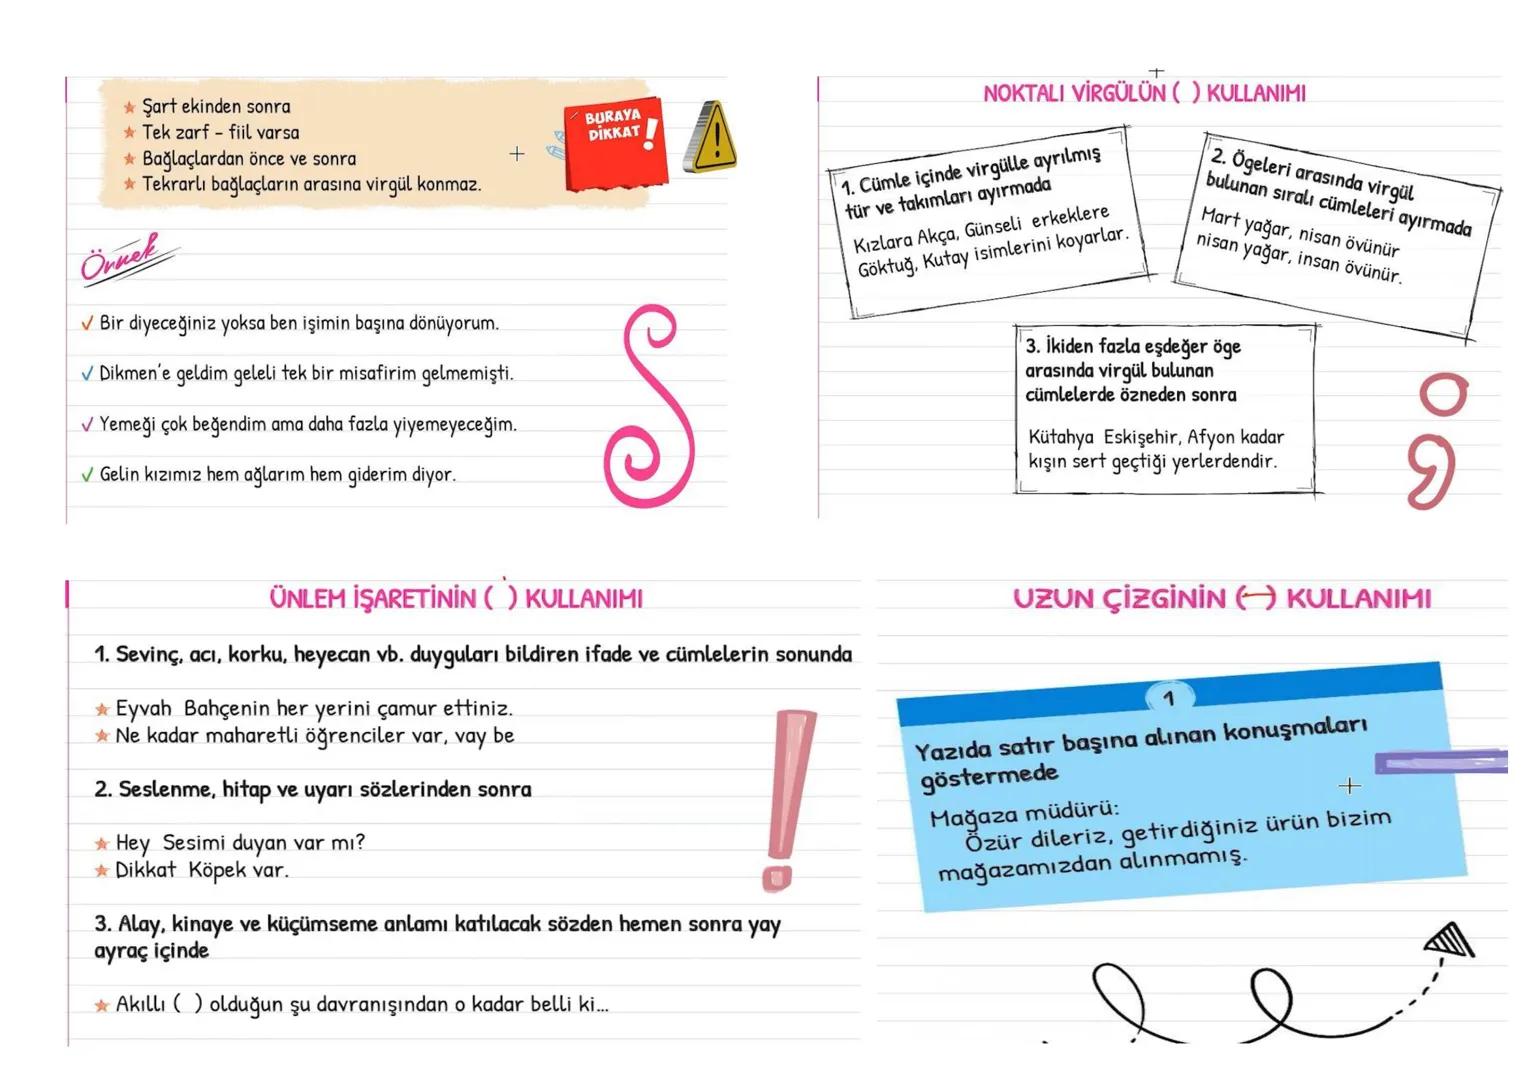 Şart ekinden sonra
Tek zarf - fiil varsa
Bağlaçlardan önce ve sonra
Tekrarlı bağlaçların arasına virgül konmaz.
BURAYA
DİKKAT !
Örnek
Bir diyeceğiniz yoksa ben işimin başına dönüyorum.
Dikmen'e geldim geleli tek bir misafirim gelmemişti.
Yemeği çok beğendim ama daha fazla yiyemeyeceğim.
Gelin kızımız hem ağlarım hem giderim diyor.
NOKTALI VİRGÜLÜN ( ) KULLANIMI
1. Cümle içinde virgülle ayrılmış
tür ve takımları ayırmada
Kızlara Akça, Günseli erkeklere
Göktuğ, Kutay isimlerini koyarlar.
2. Ögeleri arasında virgül
bulunan sıralı cümleleri ayırmada
Mart yağar, nisan övünür
nisan yağar, insan övünür.
3. İkiden fazla eşdeğer öge
arasında virgül bulunan
cümlelerde özneden sonra
Kütahya Eskişehir, Afyon kadar
kışın sert geçtiği yerlerdendir.
;
ÜNLEM İŞARETİNİN ( ) KULLANIMI
1. Sevinç, acı, korku, heyecan vb. duyguları bildiren ifade ve cümlelerin sonunda
Eyvah Bahçenin her yerini çamur ettiniz.
Ne kadar maharetli öğrenciler var, vay be
2. Seslenme, hitap ve uyarı sözlerinden sonra
Hey Sesimi duyan var mı?
Dikkat Köpek var.
3. Alay, kinaye ve küçümseme anlamı katılacak sözden hemen sonra yay
ayraç içinde
Akıllı ( ) olduğun şu davranışından o kadar belli ki...
!
UZUN ÇİZGİNİN (—) KULLANIMI
1
Yazıda satır başına alınan konuşmaları
göstermede
Mağaza müdürü:
Özür dileriz, getirdiğiniz ürün bizim
mağazamızdan alınmamış.